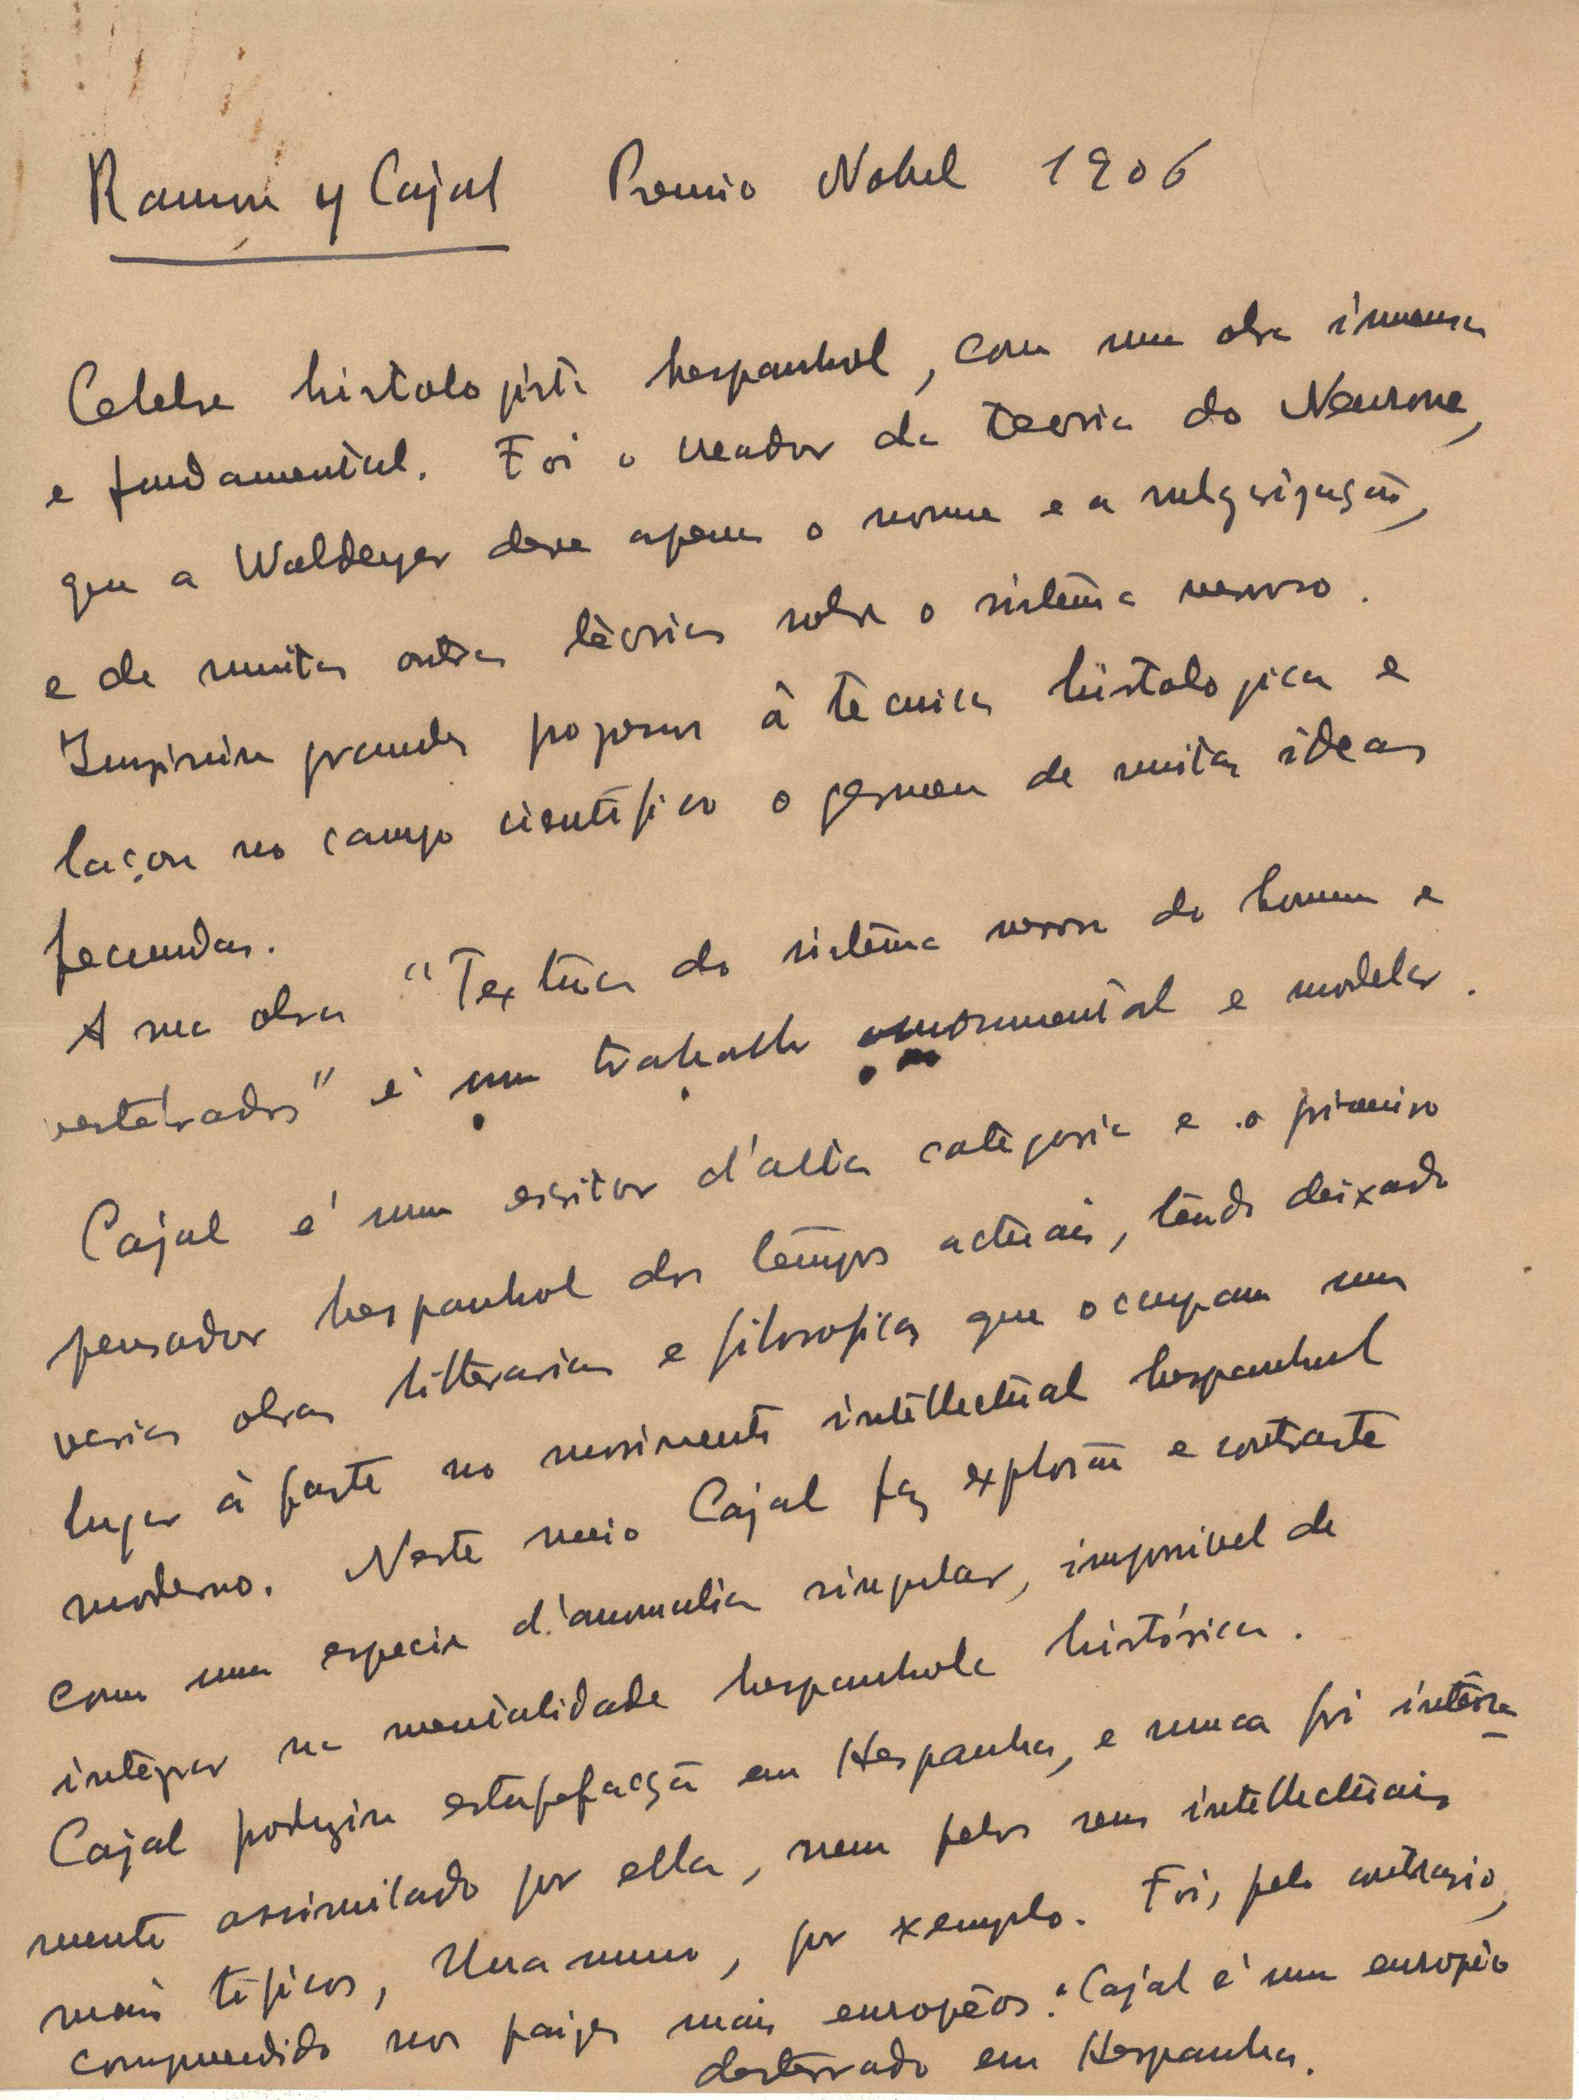 Ramon y Cajal Premio Nobel 1906
Celebre histologista hespanhol, com uma obra immensa
e fundamental. Foi o creador da teoria do Neurone,
que a Waldeyer deve apenas o nome e a vulgarização,
e de muitas outras teorias sobre o sistema nervoso.
Imprimiu grandes progressos à tecnica histologica e
laçou no campo cientifico o germen de muitas ideas
fecundas.
A sua obra "Textura do sistema nervoso do homem e
vertebrados" é um trabalho monumental e modelar.
Cajal é um escritor d'alta categoria e o primeiro
pensador hespanhol dos tempos actuais, tendo deixado
varias obras litterarias e filosoficas que occupam um
lugar à parte no movimento intellectual hespanhol
moderno. Neste meio Cajal faz explosão e contraste
como uma especie d'anomalia singular, impossivel de
integrar na mentalidade hespanhola histórica.
Cajal produziu estupefacção em Hespanha, e nunca foi inteira
mente assimilado por ella, nem pelos seus intellectuais
mais tipicos, Unamuno, por exemplo. Foi, pelo contrario,
comprendido nos paizes mais europêos. "Cajal é um europêo
desterrado em Hespanha.